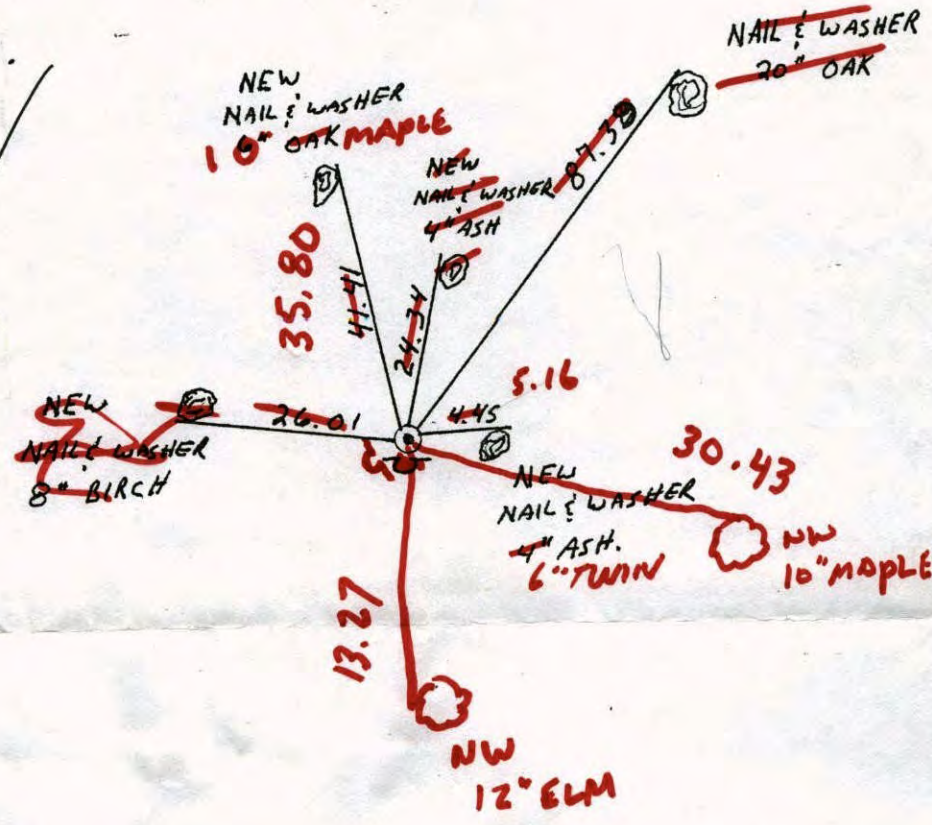 NAIL & WASHER
20" OAK
NEW
NAIL & WASHER
6" OAK MAPLE
10"
NEW
NAIL & WASHER
4" ASH
87.38
35.80
41.41
24.34
5.16
4.45
26.01
NEW
NAIL & WASHER
8" BIRCH
30.43
NEW
NAIL & WASHER
4" ASH.
6" TWIN
NW
10" MAPLE
13.27
NW
12" ELM